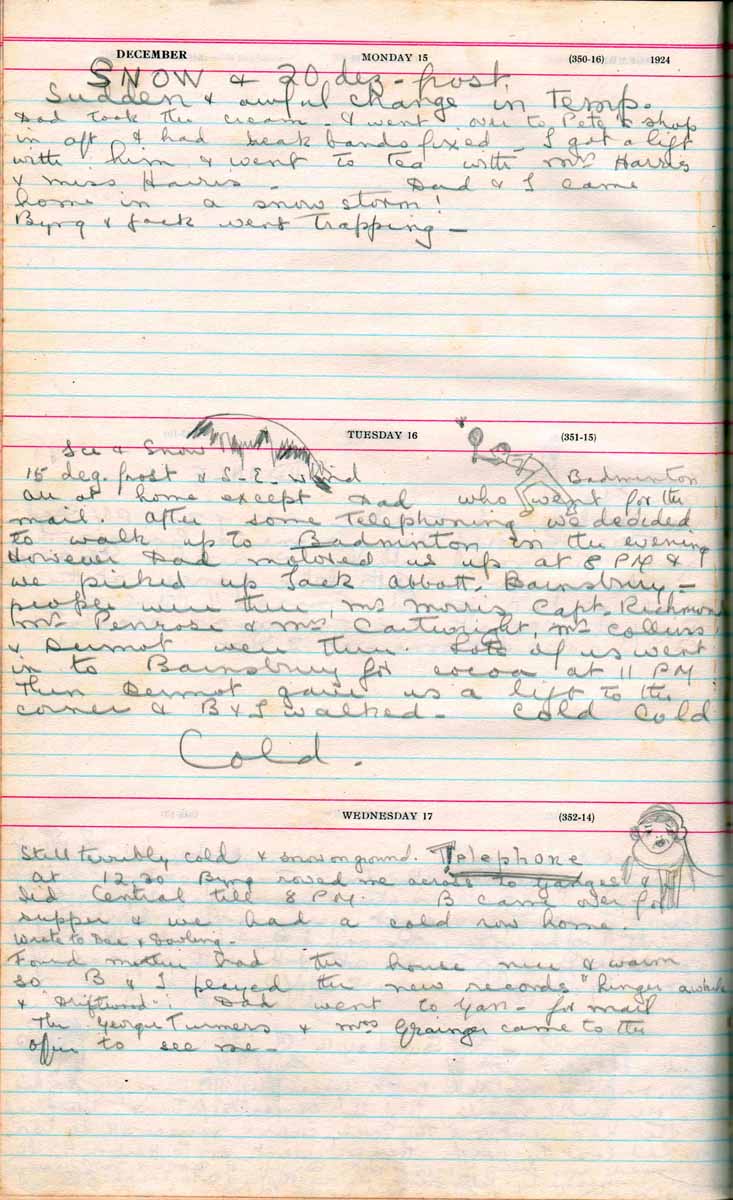 DECEMBER MONDAY 15 (350-16) 1924
SNOW & 20 deg-frost.
Sudden & awful change in Temp.
Dad took the cream - & went over to Pete's shop
in aft & had break bands fixed - I got a lift
with him & went to Tea with Mrs Harris
& Miss Harris - Dad & I came
home in a snow storm!
Byng & Jack went Trapping -
TUESDAY 16 (351-15)
Ice & Snow
15 deg. frost & S-E. Wind Badminton
all at home except Dad who went for the
mail. After some Telephoning we decided
to walk up to Badminton in the evening
However Dad motored us up at 8 PM &
we picked up Jack Abbott. Bainsbury -
people were there, Mr Morris Capt. Richmond
Mr Penrose & Mrs Cartwright, Mr Collins
& Dermot were there. Lots of us went
in to Bainsbury for cocoa at 11 PM!
Then Dermot gave us a lift to the
corner & B & I walked - Cold Cold
Cold.
WEDNESDAY 17 (352-14)
Still terribly cold & snow on ground. Telephone
at 12.30 Byng rowed me across to Ganges &
did Central till 8 PM. B came over for
supper & we had a cold row home.
Wrote to Dee & Dowling -
Found mother had the house nice & warm
so B & I played the new records "Linger awhile
& "Driftwood": Dad went to Gan - for mail
The George Turners & Mrs Grainger came to the
office to see me -